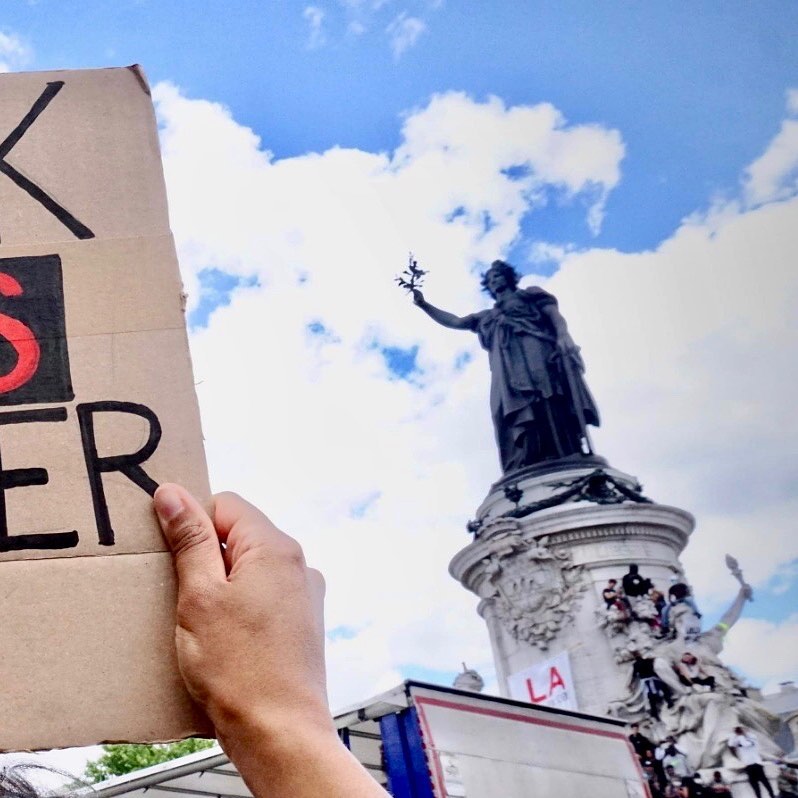 K
S
ER
LA